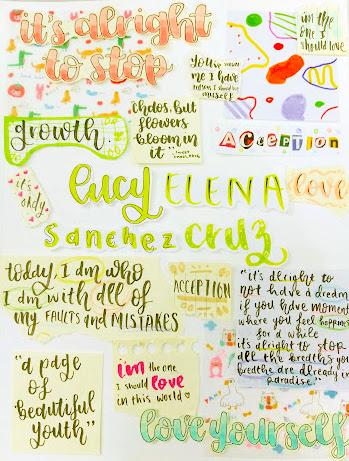 it's alright
to stop
in the
one I
should love
You've shown
me I have
reason I should love
myself
chaos. But
flowers
bloom in
it"
growth.
Acception
it's
okay
Lucy ELENA
love
Sanchez Cruz
today, I am who
I am with all of
my FAULTS and MISTAKES
ACCEPTION
"it's alright to
not have a dream
if you have moments
where you feel happiness
for a while
it's alright to stop
all the breaths you
breathe are already in
paradise"
"a page
of
beautiful
youth"
im the one
I should love
in this world
love yourself